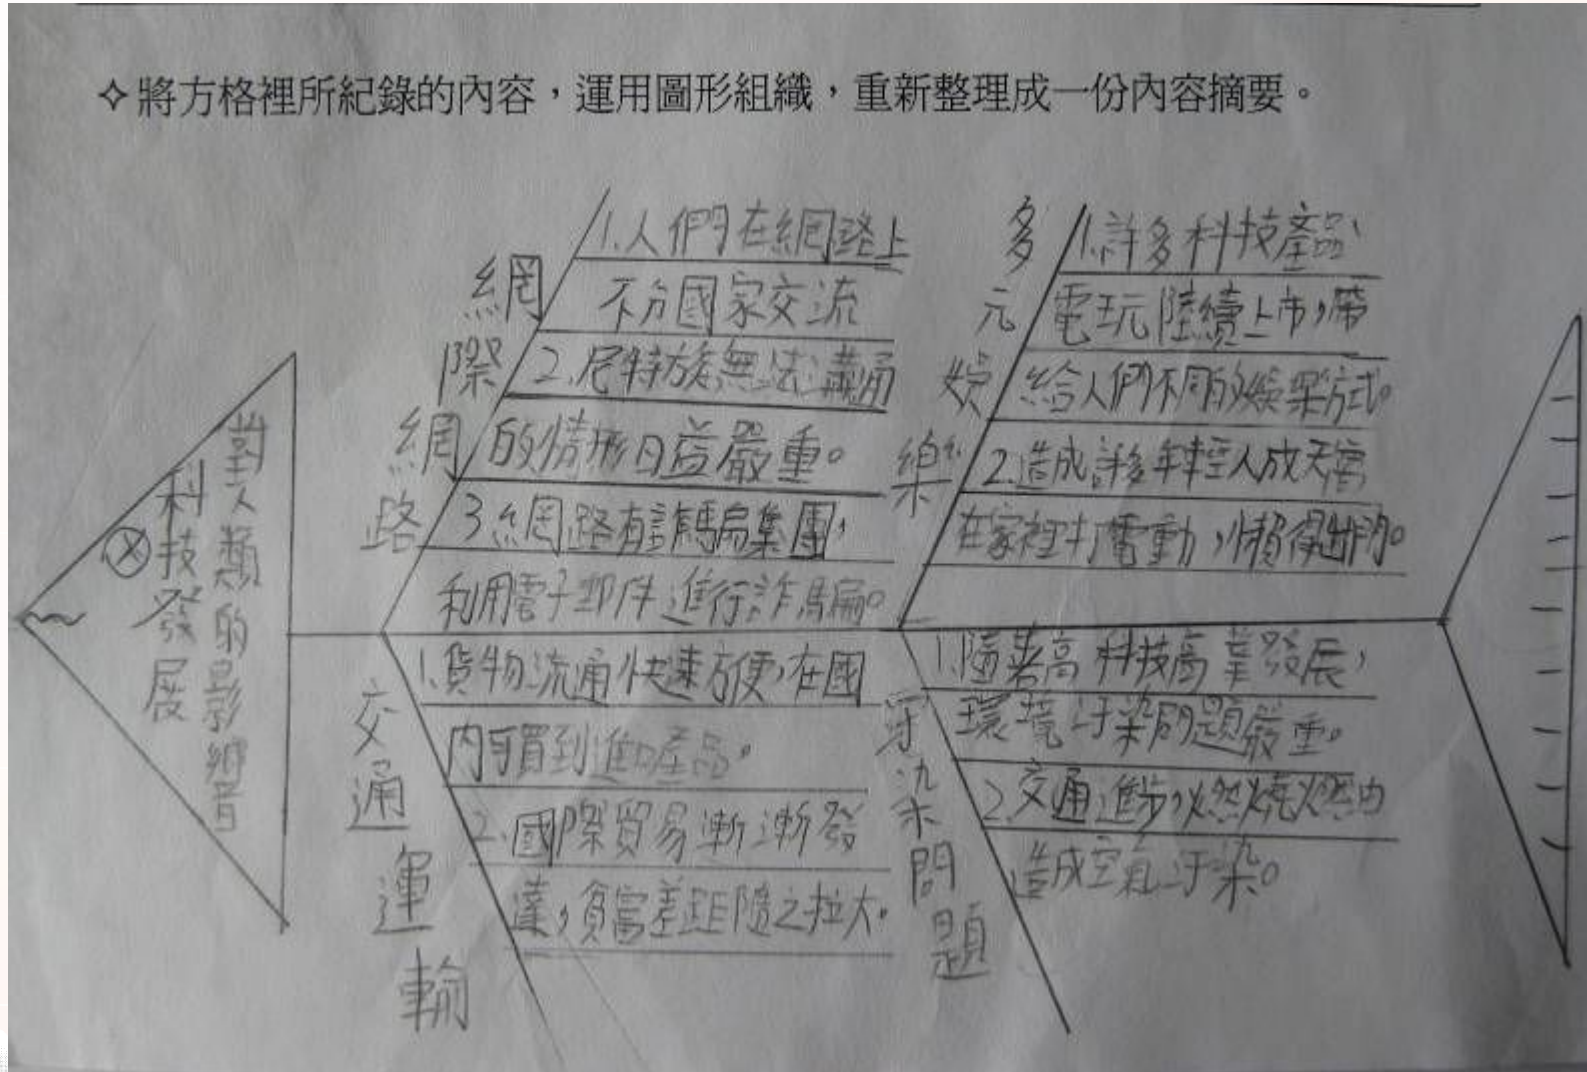 ✧將方格裡所紀錄的內容，運用圖形組織，重新整理成一份內容摘要。
科技發展
對人類的影響
網際網路
1.人們在網路上
不分國家交流
2.尼特族無法溝通
的情形日益嚴重。
3.網路有詐騙集團，
利用電子郵件進行詐騙。
多元娛樂
1.許多科技產品、
電玩陸續上市，帶
給人們不同的娛樂方式。
2.造成許多年輕人成天窩
在家裡打電動，懶得出門。
交通運輸
1.貨物流通快速方便，在國
內可買到進口產品。
2.國際貿易漸漸發
達，貧富差距隨之拉大。
污染問題
1.隨著高科技高業發展，
環境汙染問題嚴重。
2.交通進步，燃燒燃油
造成空氣汙染。